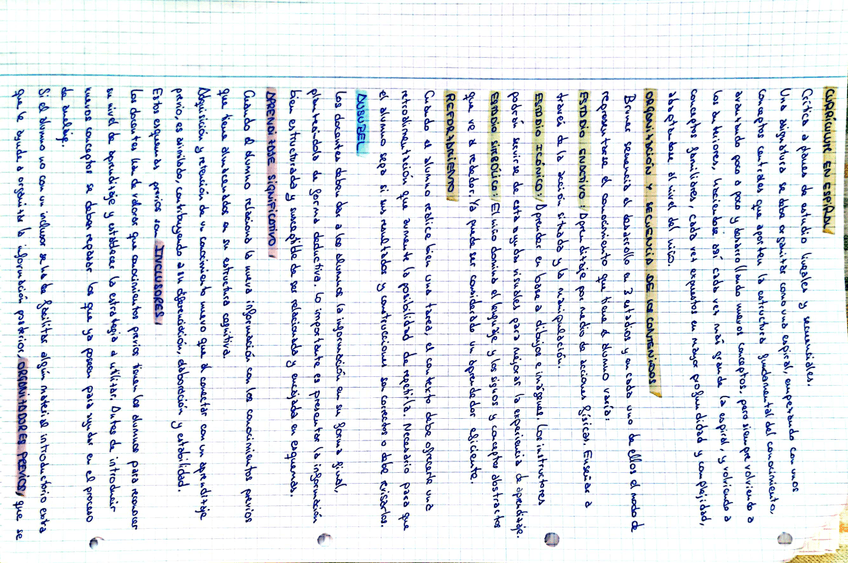 CURRICULUM EN ESPIRAL/
Crítica a planes de estudio lineales y secuenciales.
Una asignatura se debe organizar como una espiral, empezando con unos
conceptos centrales que aporten la estructura fundamental del conocimiento,
avanzando poco a poco y desarrollando nuevos conceptos, pero siempre volviendo a
los anteriores, haciéndose así cada vez más grande la espiral, y volviendo a
conceptos familiares, cada vez expuestos en mayor profundidad y complejidad,
adaptándose al nivel del niño.
ORGANIZACIÓN Y SECUENCIA DE LOS CONTENIDOS/
Bruner secuencia el desarrollo en 3 estadios y en cada uno de ellos el modo de
representarse el conocimiento que tiene el alumno varía:
ESTADIO ENACTIVO:/ Aprendizaje por medio de acciones físicas. Enseñar a
través de la acción situada y la manipulación.
ESTADIO ICÓNICO:/ Aprender en base a dibujos e imágenes. Los instructores
podrán servirse de esta ayudas visuales para mejorar la experiencia de aprendizaje.
ESTADIO SIMBÓLICO:/ El niño domina el lenguaje y los signos y conceptos abstractos
que ve al rededor. Ya puede ser considerado un aprendedor eficiente.
REFORZAMIENTO/
Cuando el alumno realice bien una tarea, el contexto debe ofrecerle una
retroalimentación que aumente la posibilidad de repetirla. Necesario para que
el alumno sepa si sus resultados y construcciones son correctos o debe revisarlos.
AUSUBEL
Los docentes deben dar a los alumnos la información en su forma final,
planteándola de forma deductiva. Lo importante es presentar la información
bien estructurada y susceptible de ser relacionada y encajada en esquemas.
APRENDIZAJE SIGNIFICATIVO/
Cuando el alumno relaciona la nueva información con los conocimientos previos
que tiene almacenados en su estructura cognitiva.
Adquisición y retención de un conocimiento nuevo que al conectar con un aprendizaje
previo, es asimilado, contribuyendo a su diferenciación, elaboración y estabilidad.
Estos esquemas previos son INCLUSORES/
Los docentes han de valorar que conocimientos previos tienen los alumnos para reconocer
su nivel de aprendizaje y establecer la estrategia a utilizar. Antes de introducir
nuevos conceptos se deben repasar los que ya poseen para ayudar en el proceso
de anclaje.
Si el alumno no con un inclusor se ha de facilitar algún material introductorio
que le ayude a organizar la información posterior, ORGANIZADORES PREVIOS/ que se